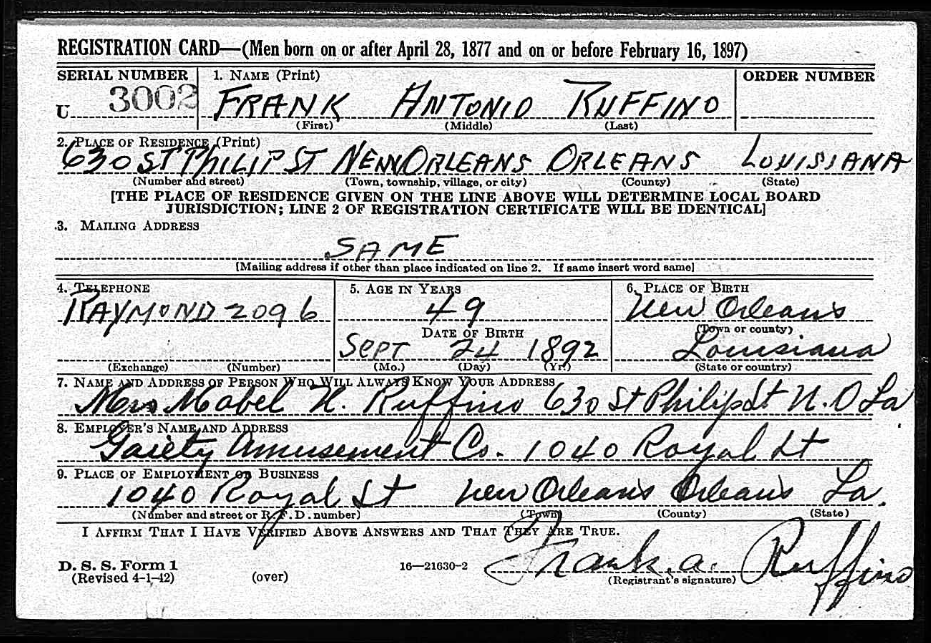 REGISTRATION CARD—(Men born on or after April 28, 1877 and on or before February 16, 1897)
SERIAL NUMBER 1. NAME (Print) ORDER NUMBER
U 3002 FRANK ANTONIO RUFFINO
(First) (Middle) (Last)
2. PLACE OF RESIDENCE (Print)
630 ST PHILIP ST NEW ORLEANS ORLEANS LOUISIANA
(Number and street) (Town, township, village, or city) (County) (State)
[THE PLACE OF RESIDENCE GIVEN ON THE LINE ABOVE WILL DETERMINE LOCAL BOARD
JURISDICTION; LINE 2 OF REGISTRATION CERTIFICATE WILL BE IDENTICAL]
3. MAILING ADDRESS
SAME
[Mailing address if other than place indicated on line 2. If same insert word same]
4. TELEPHONE 5. AGE IN YEARS 6. PLACE OF BIRTH
RAYMOND 2096 49 New Orleans
DATE OF BIRTH (Town or county)
SEPT 24 1892 Louisiana
(Exchange) (Number) (Mo.) (Day) (Yr.) (State or country)
7. NAME AND ADDRESS OF PERSON WHO WILL ALWAYS KNOW YOUR ADDRESS
Mrs Mabel H. Ruffino 630 St Philip St N.O La
8. EMPLOYER'S NAME AND ADDRESS
Gaiety Amusement Co. 1040 Royal St
9. PLACE OF EMPLOYMENT OR BUSINESS
1040 Royal St New Orleans Orleans La.
(Number and street or R. F. D. number) (Town) (County) (State)
I AFFIRM THAT I HAVE VERIFIED ABOVE ANSWERS AND THAT THEY ARE TRUE.
Frank. a. Ruffino
D. S. S. Form 1
(Revised 4-1-42) (over) 16—21630-2 (Registrant's signature)